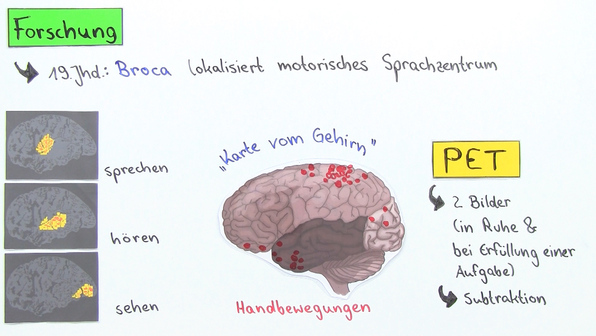 Forschung
19. Jhd.: Broca lokalisiert motorisches Sprachzentrum
sprechen
hören
sehen
"Karte vom Gehirn"
Handbewegungen
PET
2 Bilder
(in Ruhe &
bei Erfüllung einer
Aufgabe)
Subtraktion